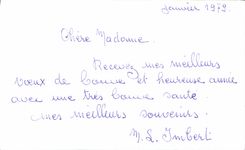 Janvier 1972
Chère Madame.
Recevez mes meilleurs
vœux de bonne et heureuse année
avec une très bonne santé.
Mes meilleurs souvenirs.
M. L. Imbert